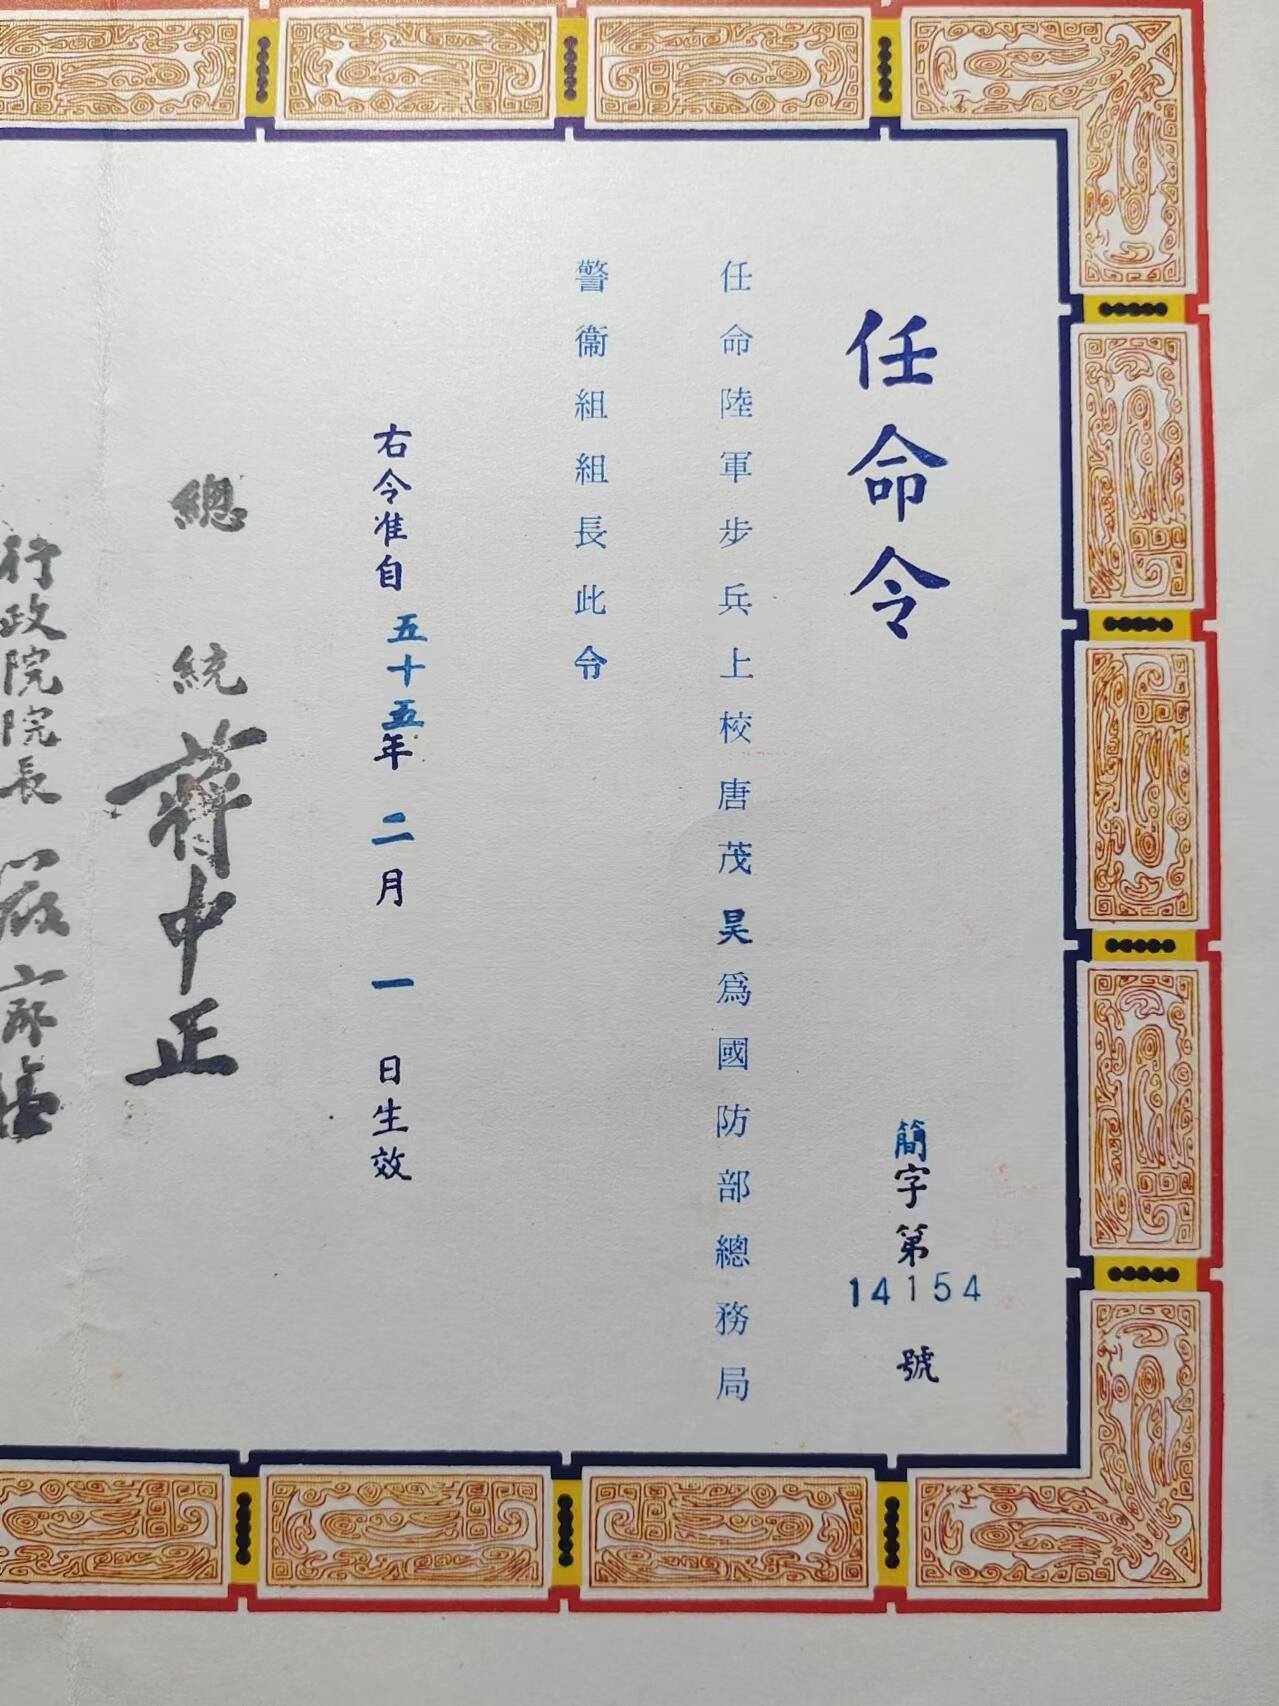 任命令
簡字第14154號
任命陸軍步兵上校唐茂昊爲國防部總務局
警衞組組長此令
右令准自五十五年二月一日生效
總統蔣中正
行政院院長嚴家淦